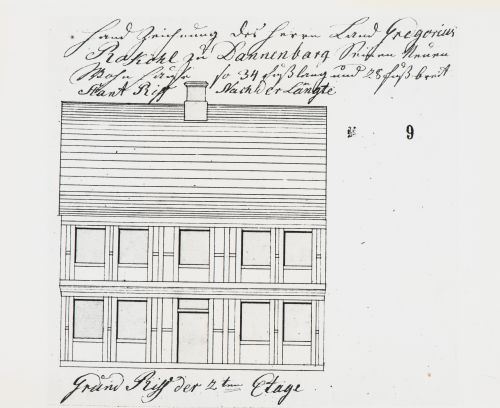 Hand Zeichnung des Herrn Land Gregorius
Rakohl zu Dannenbarg Seinen Neuen
Wohn Hause so 34 fuß lang und 28 fuß breit
Stant Riß Nach der Längte
9
Grund Riß der 2ten Etage